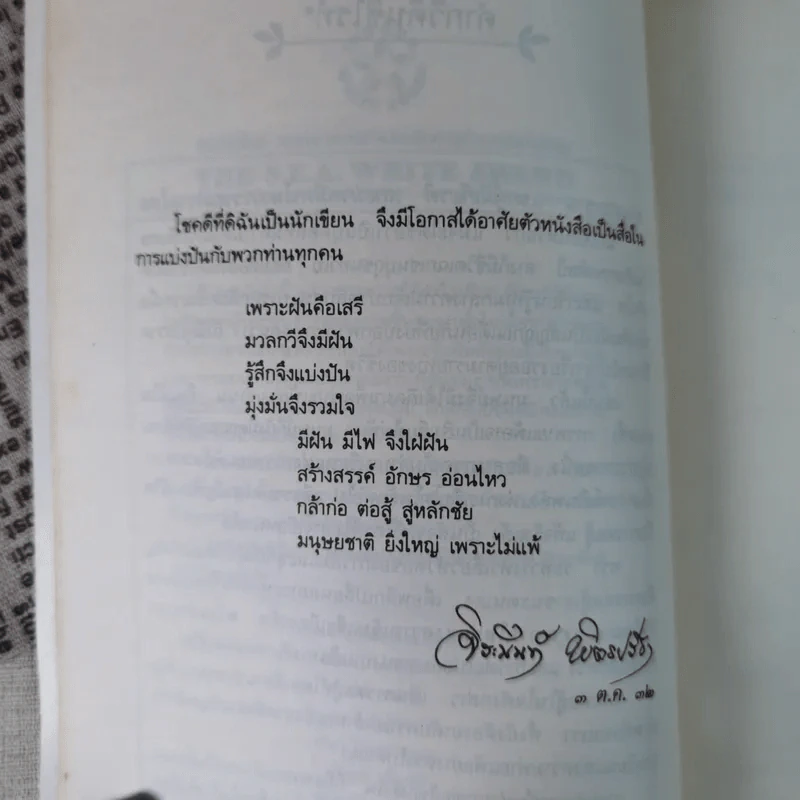 โชคดีที่ดิฉันเป็นนักเขียน จึงมีโอกาสได้อาศัยตัวหนังสือเป็นสื่อใน
การแบ่งปันกับพวกท่านทุกคน
เพราะฝันคือเสรี
มวลกวีจึงมีฝัน
รู้สึกจึงแบ่งปัน
มุ่งมั่นจึงรวมใจ
มีฝัน มีไฟ จึงใฝ่ฝัน
สร้างสรรค์ อักษร อ่อนไหว
กล้าก่อ ต่อสู้ สู่หลักชัย
มนุษยชาติ ยิ่งใหญ่ เพราะไม่แพ้
จิระนันท์ พิตรปรีชา
๓ ต.ค. ๓๒